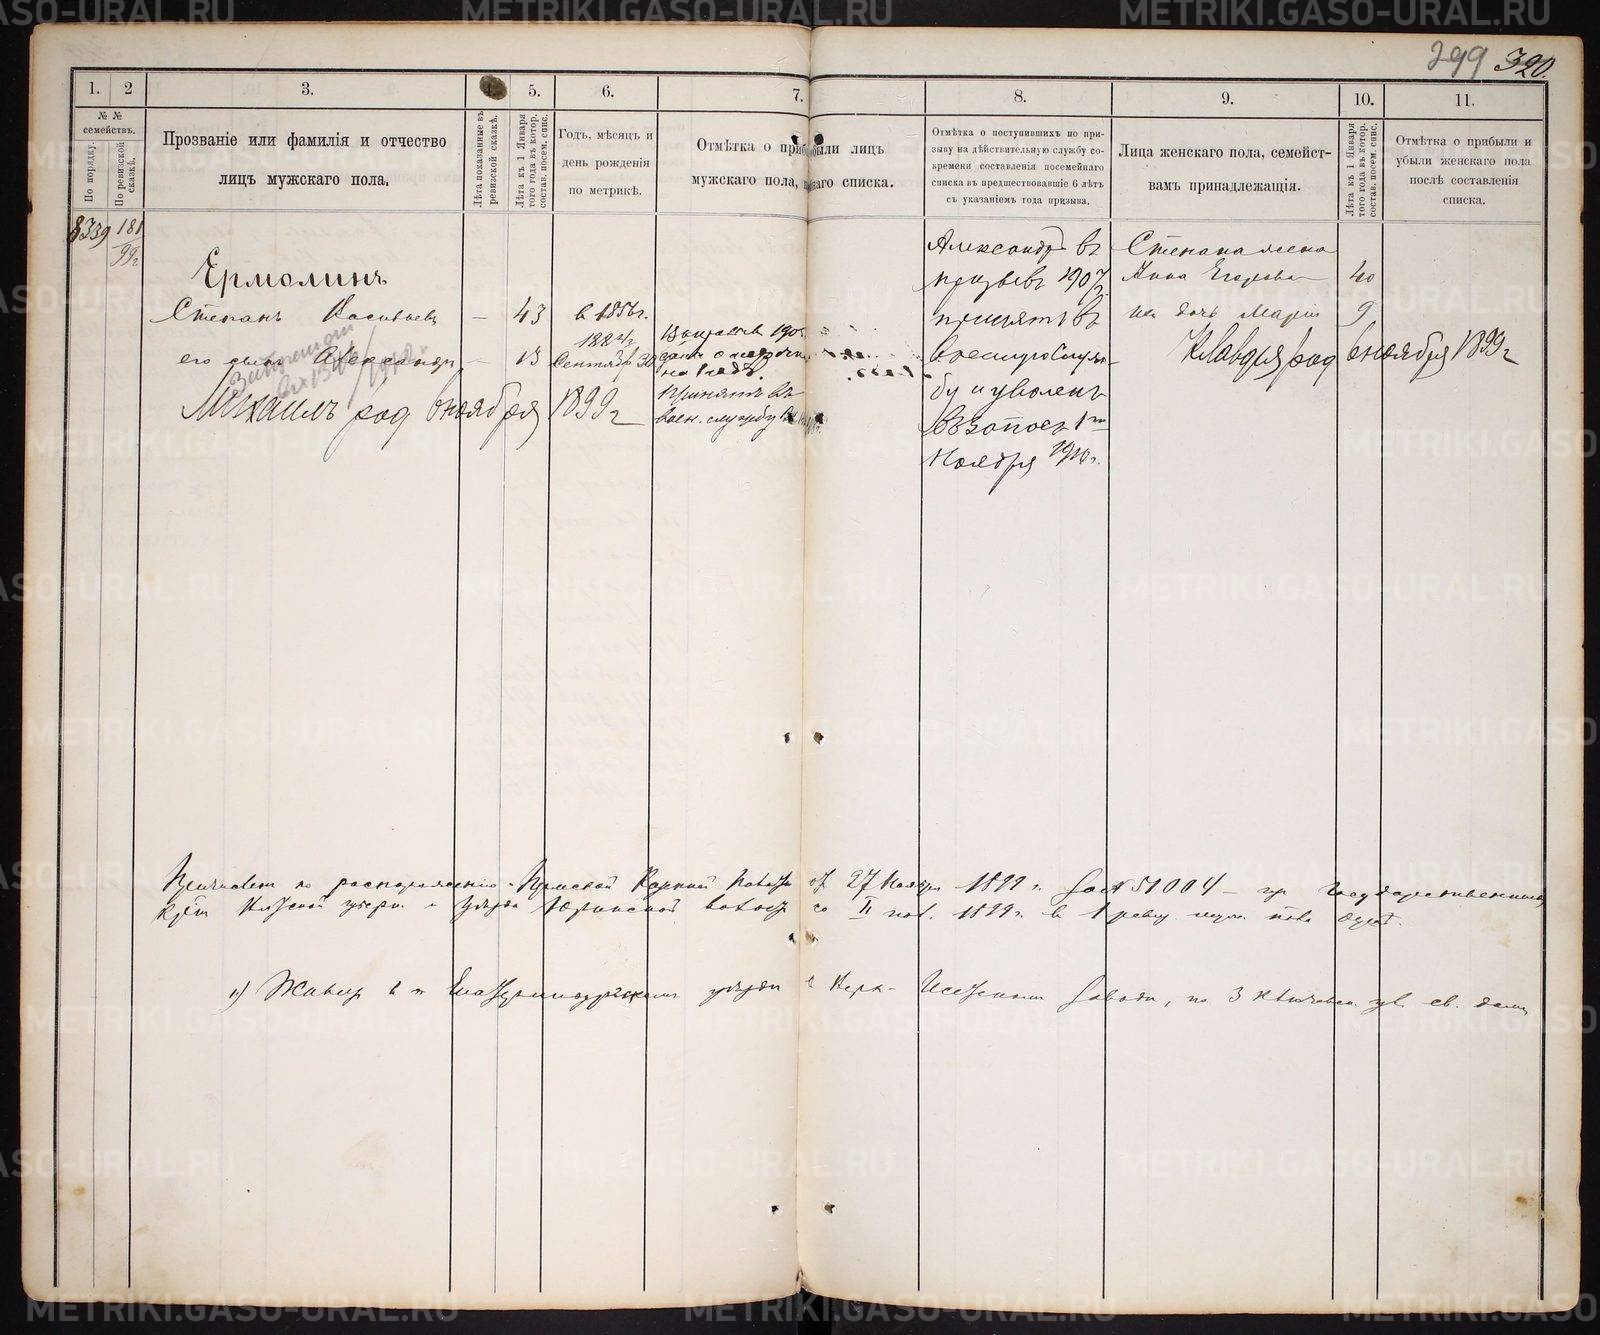 299 320.
1. 2 3. 4. 5. 6. 7. 8. 9. 10. 11.
№ №
семействъ.
По порядку.
По ревизской
сказкѣ.
Прозваніе или фамилія и отчество
лицъ мужскаго пола.
Лѣта показанные въ
ревизской сказкѣ.
Лѣта къ 1 Января
того года въ котор.
состав. посем. спис.
Годъ, мѣсяцъ и
день рожденія
по метрикѣ.
Отмѣтка о прибыли лицъ
мужскаго пола, списка.
Отмѣтка о поступившихъ по при-
зыву на дѣйствительную службу со-
времени составленія посемейнаго
списка въ предшествовавшіе 6 лѣтъ
съ указаніемъ года призыва.
Лица женскаго пола, семейст-
вамъ принадлежащія.
Лѣта къ 1 Января
того года въ котор.
состав. посем. спис.
Отмѣтка о прибыли и
убыли женскаго пола
послѣ составленія
списка.
8339 181
99г
Ермолинъ
Степанъ Васильевъ — 43 в 1856 г.
его сынъ Александръ — 15 Сентябр 30
Михаилъ род 6 ноября 1899 г
на 1 годъ.
Принятъ въ
воен. службу
Александръ въ
призывъ 1907 г
принятъ въ
военную служ-
бу и уволенъ
въ запасъ 1го
Ноября 1910 г.
Степана жена
Анна Егорова 40
их дочь Марія 9
Клавдія род 6 ноября 1899 г
Причислен по распоряженію Пермской Казенной Палаты от 27 Ноября 1899 г. за № 51004 —
Вятской губерн. и уѣзда волости со II пол. 1899 г. в
1) Живут в Екатеринбургском уѣзде в Верх-Исетском заводе, по 3 Ключевск ул. св. доме